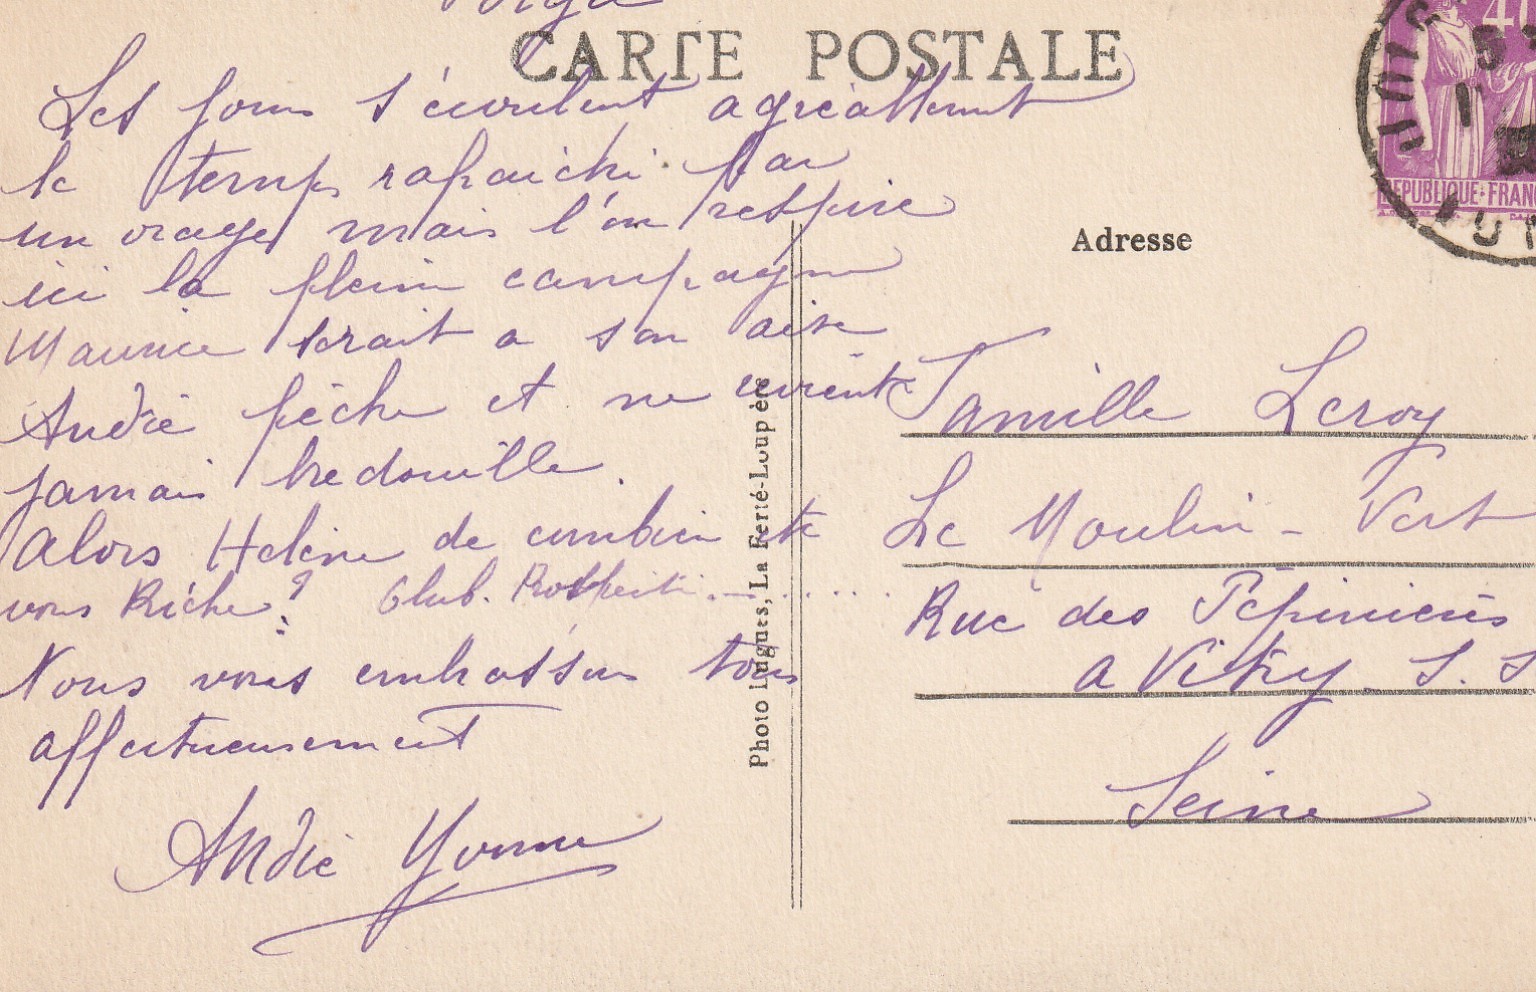 CARTE POSTALE
Les jours s'écoulent agréablement
le temps rafraichi par
un orage mais l'on respire
ici la pleine campagne
Maurice serait a son aise
André pêche et ne revient
jamais bredouille.
Alors Helène de combien te
vous Riche? Club.
Nous vous embrassons tous
affectueusement
André Yvonne
Photo Lugnes, La Ferté-Loupée
Adresse
Famille Leroy
Le Moulin - Vert
Rue des Pépinières
a Vitry. S. S.
Seine
40
REPUBLIQUE FRANC